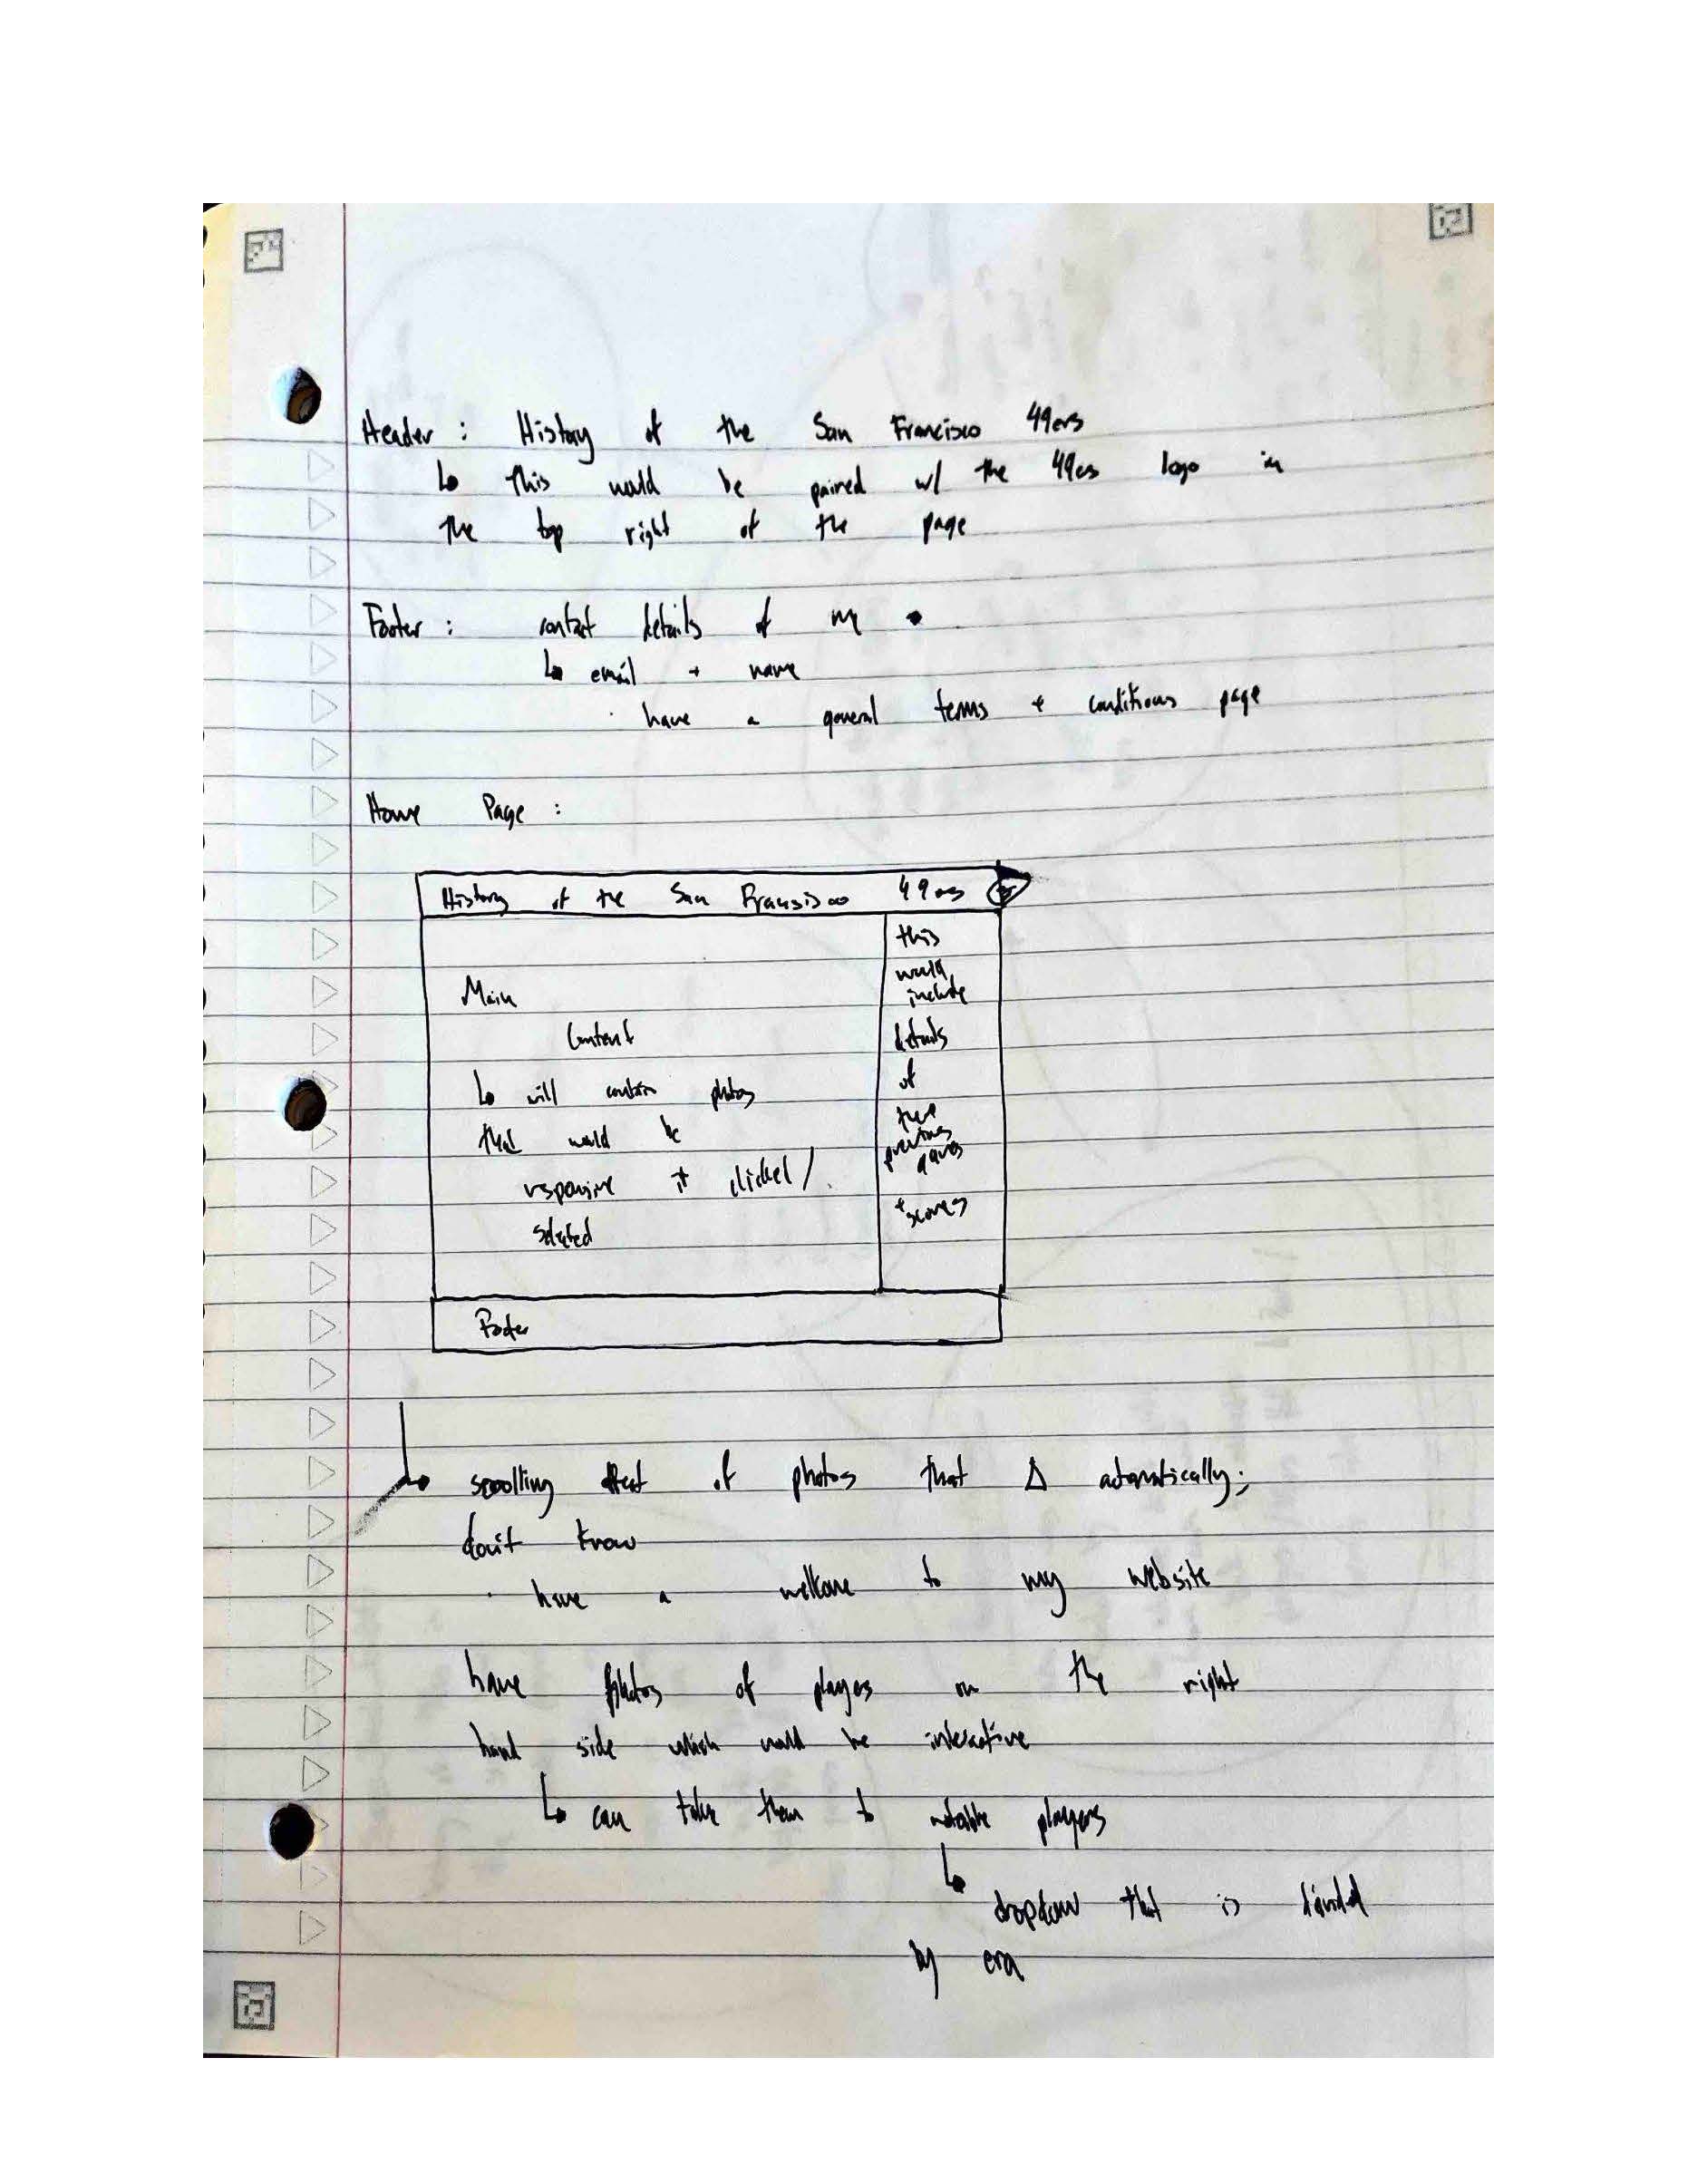 Header : History of the San Francisco 49ers
↳ this would be paired w/ the 49ers logo in
the top right of the page
Footer : contact details of me
↳ email + name
· have a general terms + conditions page
Home Page :
History of the San Fransisco 49ers
Main
Content
↳ will contain photos
that would be
responsive if clicked /
selected
this
would
include
details
of
previous
games
+ scores
Footer
↳ scrolling effect of photos that Δ automatically;
don't know
· have a welcome to my website
have photos of players on the right
hand side which would be interactive
↳ can take them to notable players
↳ dropdown that is divided
by era